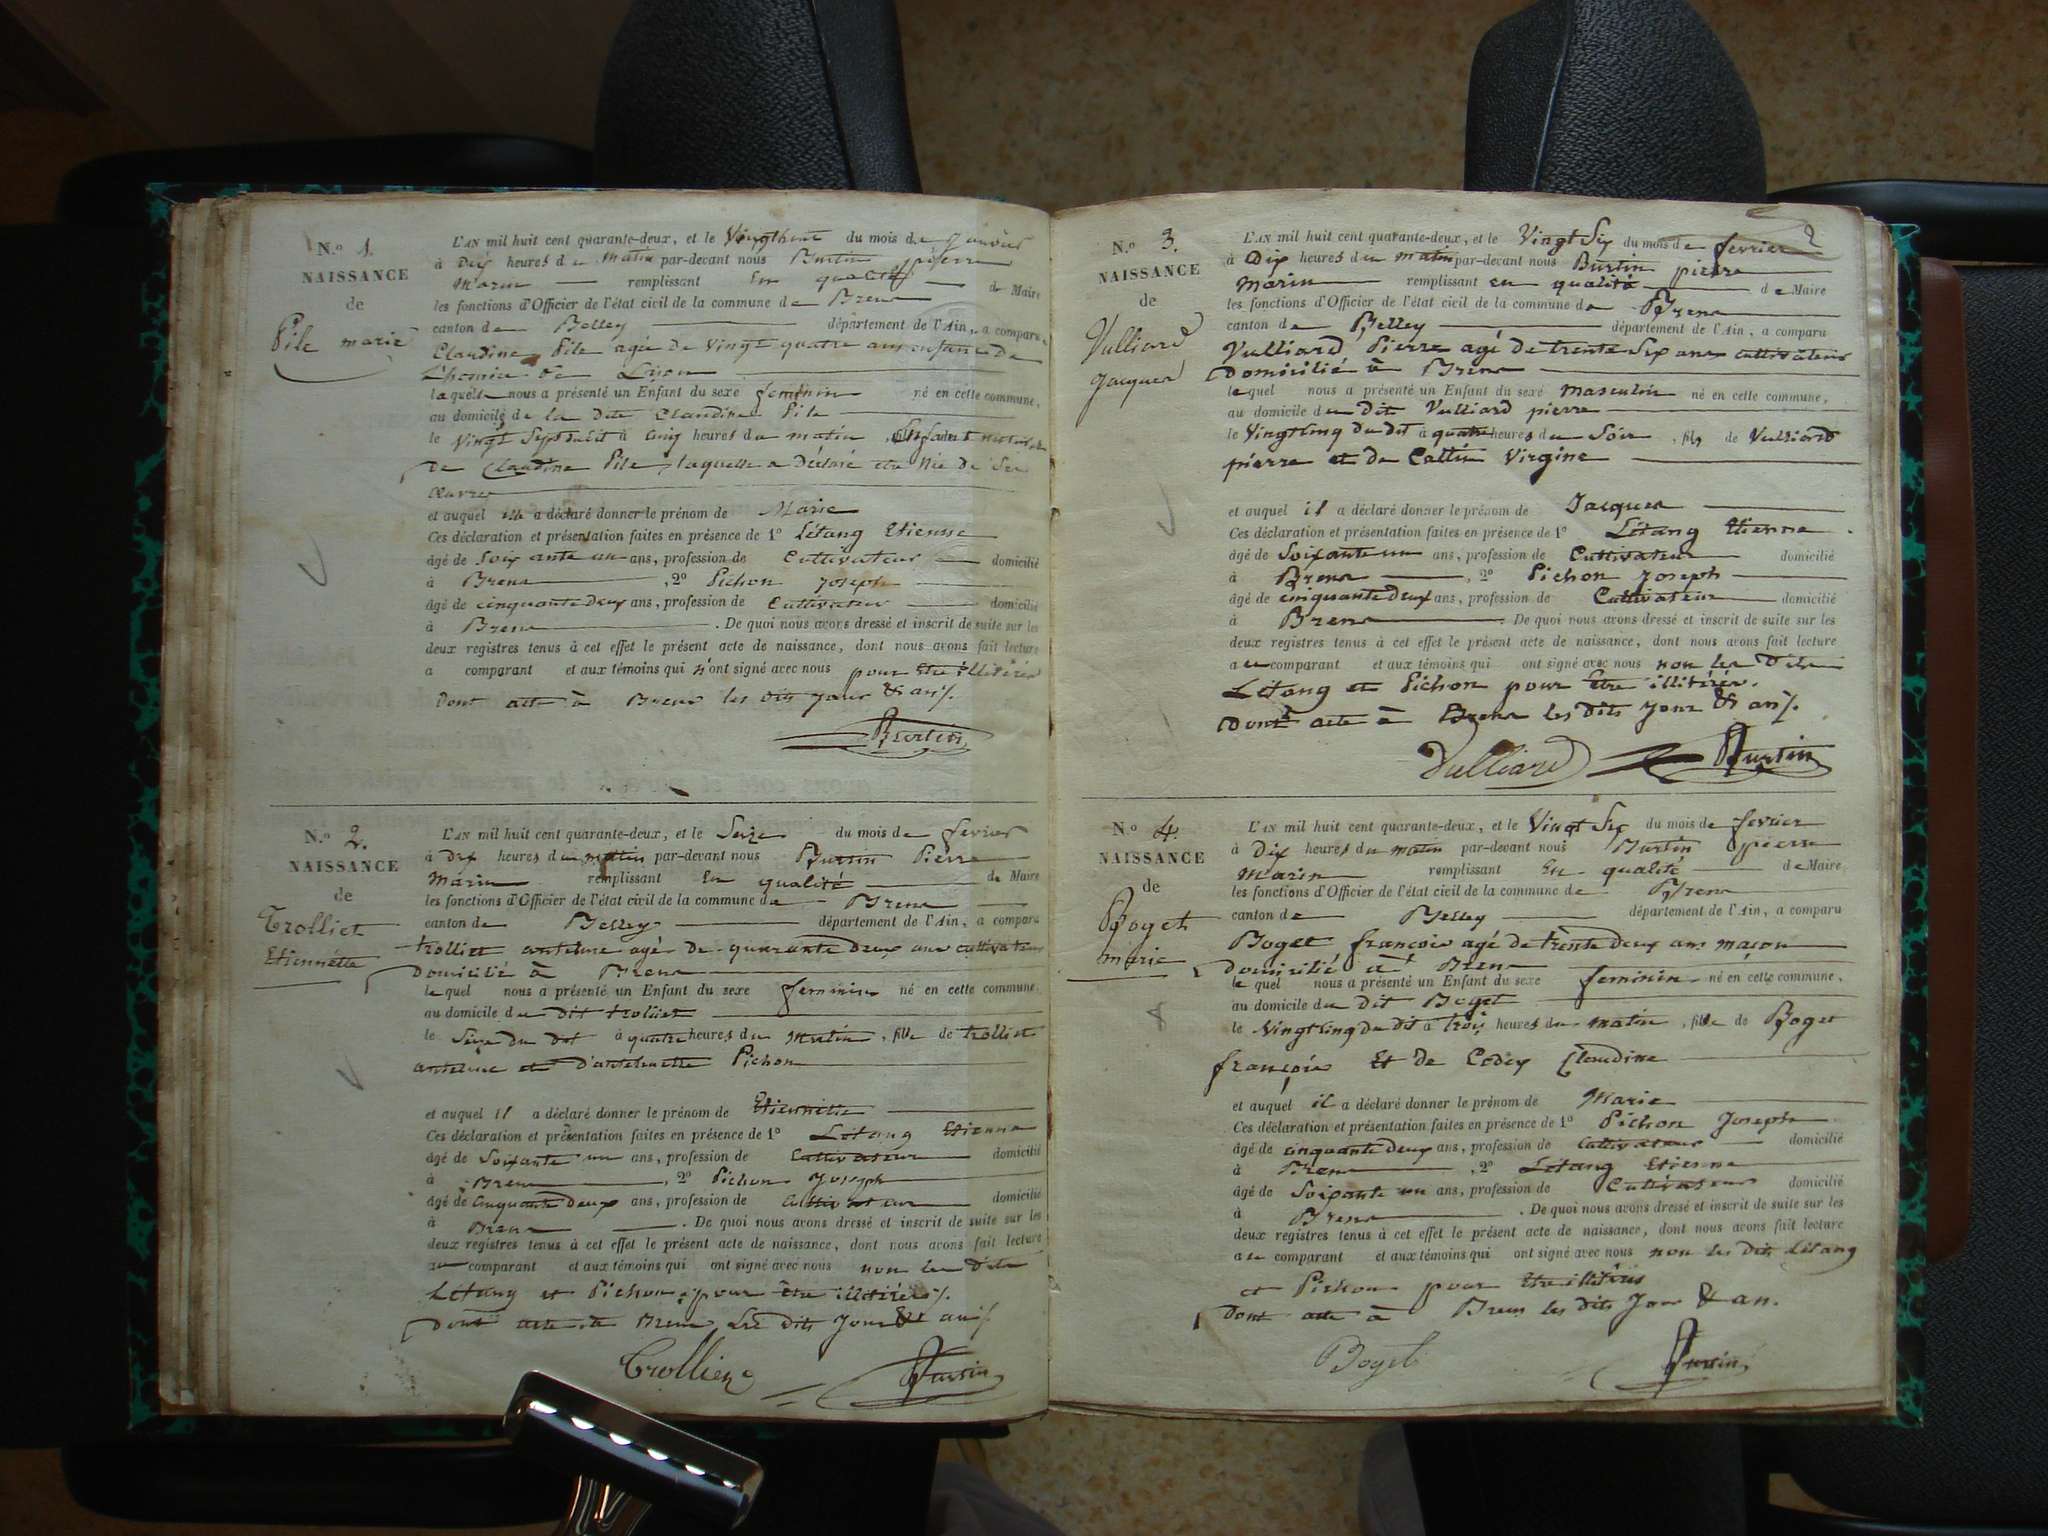 N.o 1.
NAISSANCE
de
Pile marie
L'AN mil huit cent quarante-deux, et le Vingthuit du mois de Janvier
à Dix heures du matin par-devant nous Burtin pierre
Marin remplissant En qualité de Maire
les fonctions d'Officier de l'état civil de la commune de Brens
canton de Belley département de l'Ain, a comparu
Claudine Pile agée de Vingt quatre ans enfant de
de Lyon
laquelle nous a présenté un Enfant du sexe feminin né en cette commune,
au domicile de la Dite Claudine Pile
le Vingt Sept à Cinq heures du matin, Enfant naturel
de Claudine Pile, laquelle a Déclaré etre Née de Ses
Œuvres
et auquel elle a déclaré donner le prénom de Marie
Ces déclaration et présentation faites en présence de 1º Létang Etienne
âgé de Soixante un ans, profession de Cultivateur domicilié
à Brens, 2º Pichon Joseph
âgé de cinquante deux ans, profession de Cultivateur domicilié
à Brens. De quoi nous avons dressé et inscrit de suite sur les
deux registres tenus à cet effet le présent acte de naissance, dont nous avons fait lecture
a comparant et aux témoins qui n'ont signé avec nous pour Etre illitérés
Dont acte à Brens les dits Jour & an %.
Burtin
N.o 2.
NAISSANCE
de
Trolliet
Etiennette
L'AN mil huit cent quarante-deux, et le Seize du mois de fevrier
à dix heures du matin par-devant nous Burtin Pierre
Marin remplissant En qualité de Maire
les fonctions d'Officier de l'état civil de la commune de Brens
canton de Belley département de l'Ain, a comparu
trolliet antelme agé de quarante deux ans cultivateur
domicilié à Brens
lequel nous a présenté un Enfant du sexe feminin né en cette commune,
au domicile du dit trolliet
le Seize du dit à quatre heures du matin, fille de trolliet
antelme et d'antelmette Pichon
et auquel il a déclaré donner le prénom de Etiennette
Ces déclaration et présentation faites en présence de 1º Létang Etienne
âgé de Soixante un ans, profession de Cultivateur domicilié
à Brens, 2º Pichon Joseph
âgé de Cinquante deux ans, profession de Cultivateur domicilié
à Brens. De quoi nous avons dressé et inscrit de suite sur les
deux registres tenus à cet effet le présent acte de naissance, dont nous avons fait lecture
au comparant et aux témoins qui ont signé avec nous non les Dits
Létang et Pichon pour être illitérés %.
Dont acte à Brens Les dits Jour & an %
Trolliet Burtin
2
N.o 3.
NAISSANCE
de
Vulliard
Jacques
L'AN mil huit cent quarante-deux, et le Vingt Six du mois de fevrier
à Dix heures du matin par-devant nous Burtin pierre
Marin remplissant en qualité de Maire
les fonctions d'Officier de l'état civil de la commune de Brens
canton de Belley département de l'Ain, a comparu
Vulliard Pierre agé de trente Six ans cultivateur
domicilié à Brens
lequel nous a présenté un Enfant du sexe masculin né en cette commune,
au domicile du Dit Vulliard pierre
le Vingtcinq du dit à quatre heures du Soir, fils de Vulliard
pierre et de Cattin Virgine
et auquel il a déclaré donner le prénom de Jacques
Ces déclaration et présentation faites en présence de 1º Létang Etienne.
âgé de Soixante un ans, profession de Cultivateur domicilié
à Brens, 2º Pichon Joseph
âgé de cinquante deux ans, profession de Cultivateur domicilié
à Brens. De quoi nous avons dressé et inscrit de suite sur les
deux registres tenus à cet effet le présent acte de naissance, dont nous avons fait lecture
au comparant et aux témoins qui ont signé avec nous non les Dits
Létang et Pichon pour être illitérés.
Dont acte à Brens les dits Jour & an %.
Vulliard Burtin
N.o 4.
NAISSANCE
de
Boget
marie
L'AN mil huit cent quarante-deux, et le Vingt Six du mois de fevrier
à Dix heures du matin par-devant nous Burtin pierre
Marin remplissant En qualité de Maire
les fonctions d'Officier de l'état civil de la commune de Brens
canton de Belley département de l'Ain, a comparu
Boget françois agé de trente deux ans maçon
domicilié à Brens
lequel nous a présenté un Enfant du sexe feminin né en cette commune,
au domicile du Dit Boget
le Vingtcinq du dit à trois heures du matin, fille de Boget
françois Et de Codex Claudine
et auquel il a déclaré donner le prénom de Marie
Ces déclaration et présentation faites en présence de 1º Pichon Joseph
âgé de cinquante deux ans, profession de Cultivateur domicilié
à Brens, 2º Létang Etienne
âgé de Soixante un ans, profession de Cultivateur domicilié
à Brens. De quoi nous avons dressé et inscrit de suite sur les
deux registres tenus à cet effet le présent acte de naissance, dont nous avons fait lecture
au comparant et aux témoins qui ont signé avec nous non les dits Létang
et Pichon pour Etre illitérés
Dont acte à Brens les dits Jour & an.
Boget Burtin